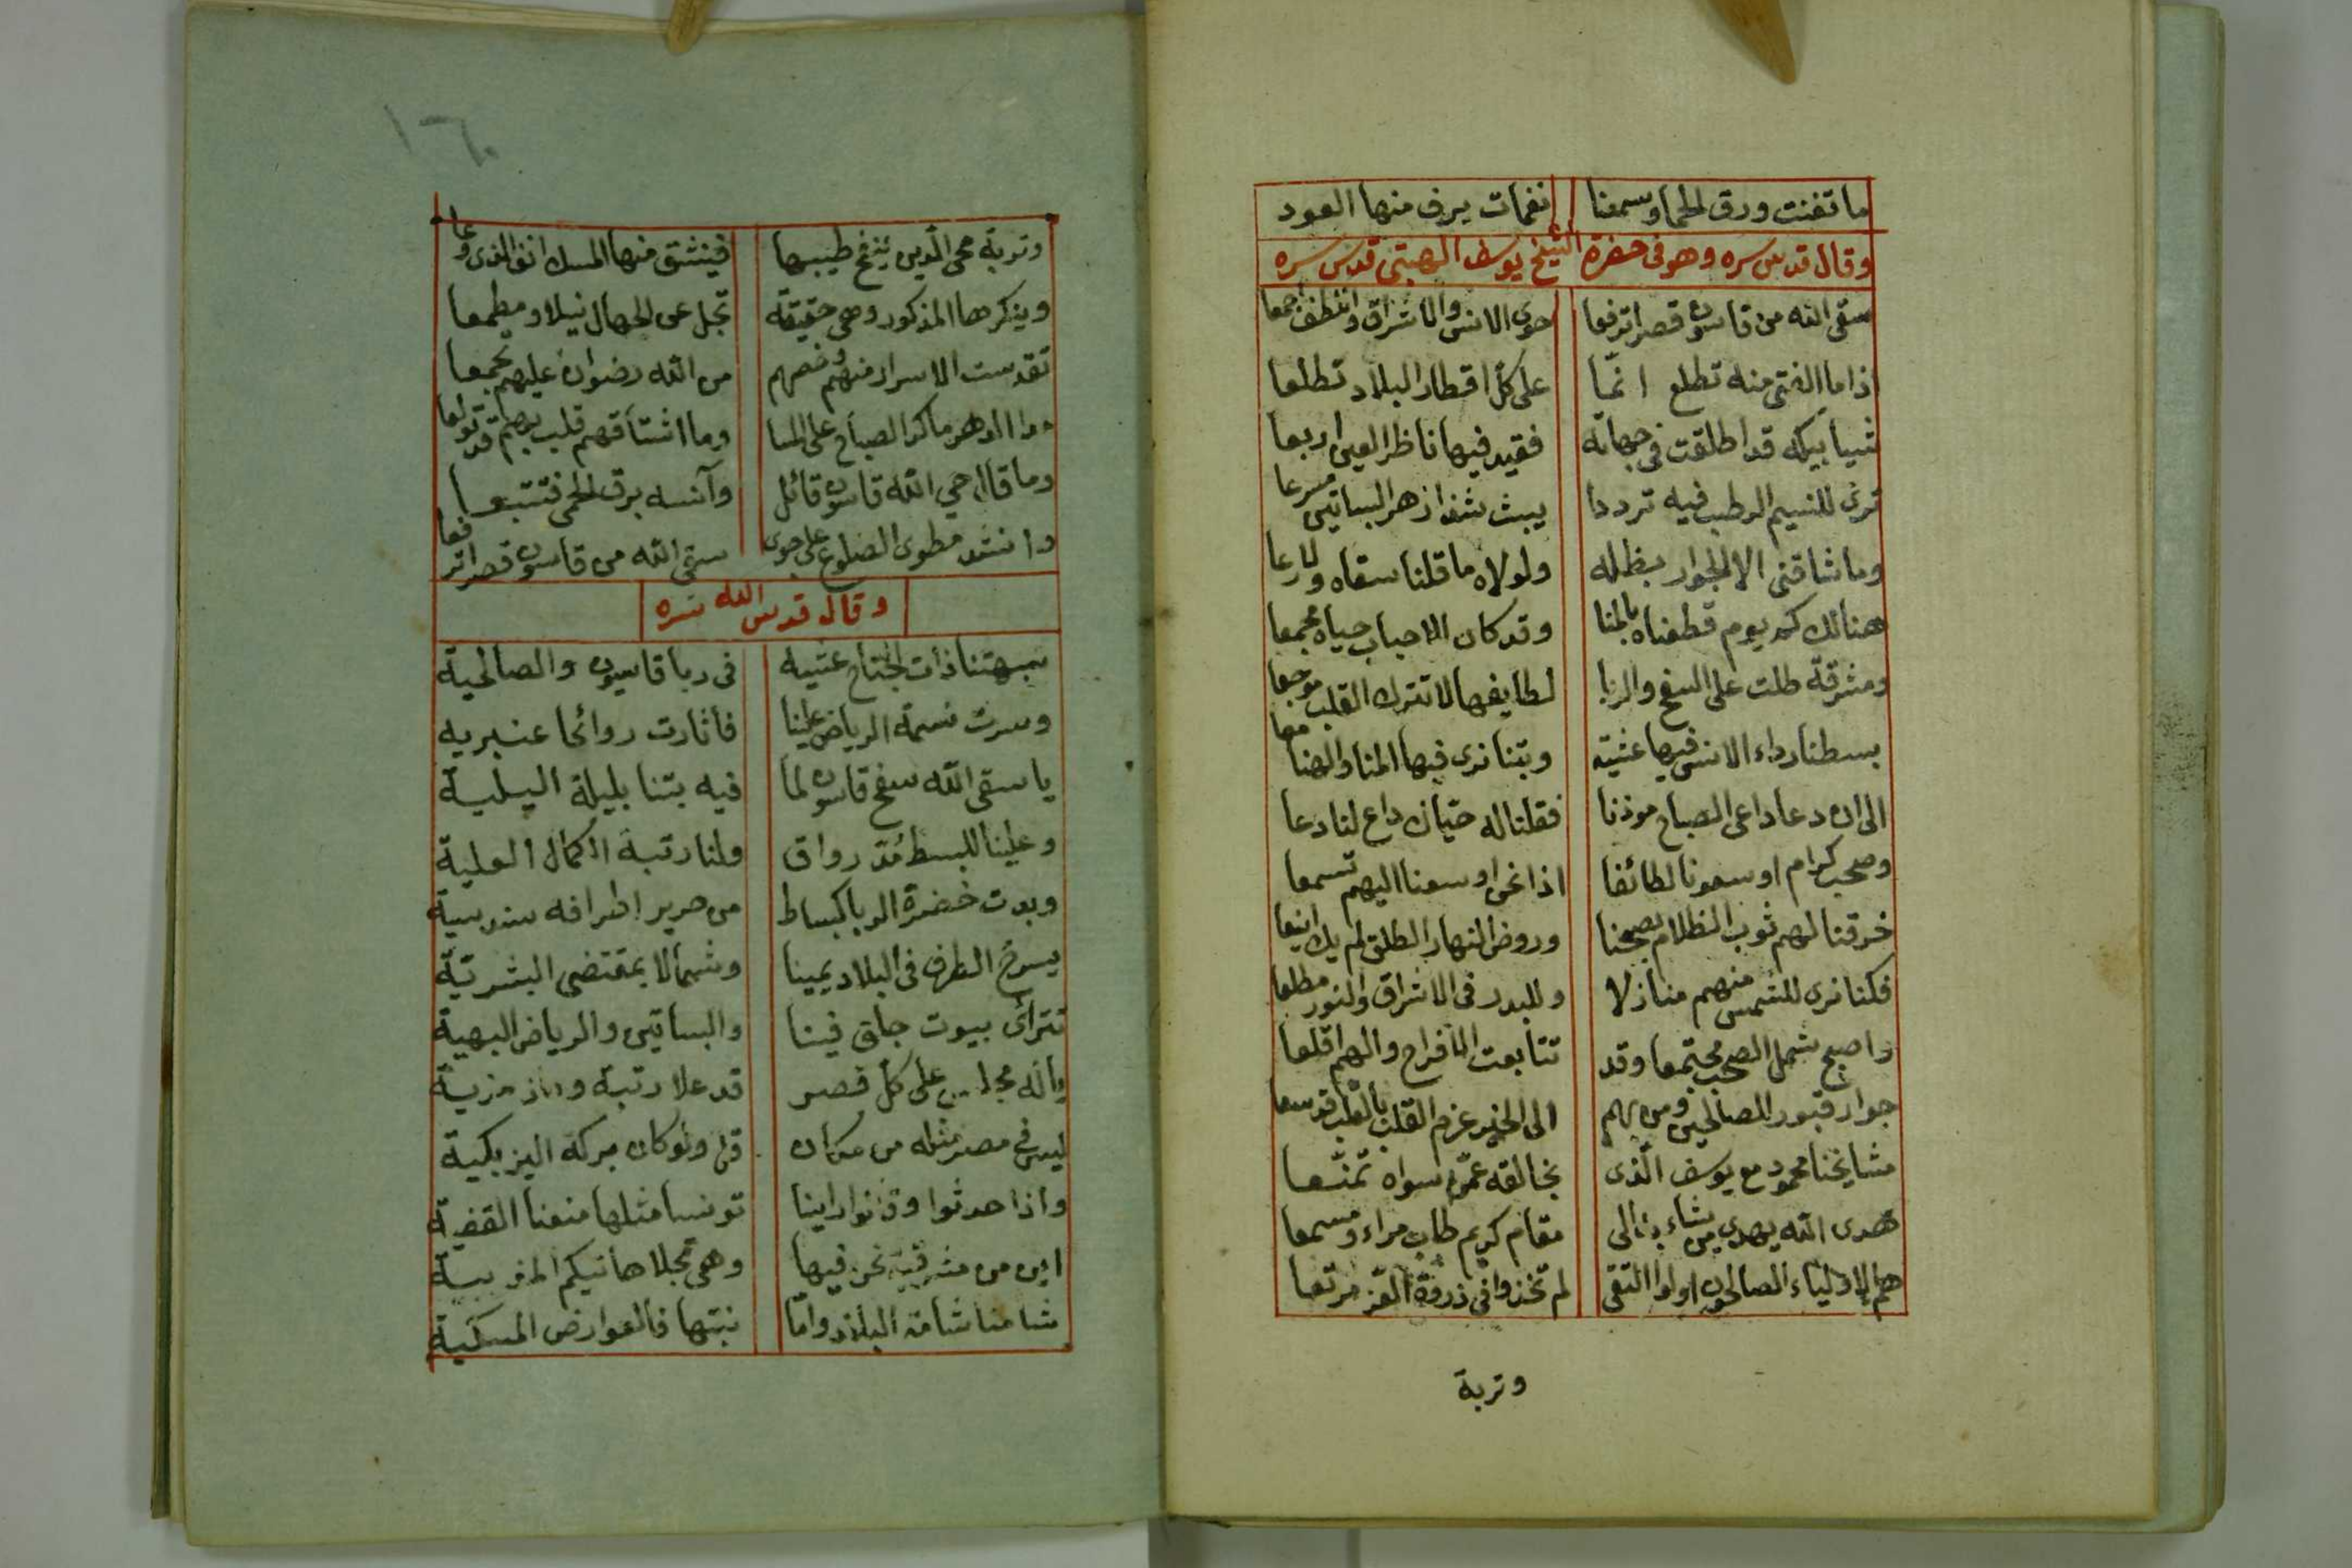 ما تغنت ورق الحما وسمعنا نغمات يرف منها العود
وقال قدس سره وهو في حضرة الشيخ يوسف القدس سره
سقى الله من قاسون قصرا ترفعا حوى الانس والاشراق واللطف اجمعا
اذا ما الفتى منه تطلع انما على كل اقطار البلاد تطلعا
شبابيكه قد اطلقت في جهاته فقيد فيها ناظر العين اربعا
ترى للنسيم الرطب فيه ترددا يبث شذا زهر البساتين مسرعا
وما شاقني الا الجوار بظله ولولاه ما قلنا سقاه ولا رعا
هنالك كم يوم قطعناه بالمنا وقد كان الاحباب حياه مجمعا
ومشرقة طلت على السفح والربا لطايفها لا تترك القلب موجعا
بسطنا رداء الانس فيها عشية وبتنا نرى فيها المنا والهنا معا
الى ان دعا داعي الصباح موذنا فقلنا له حيّاك داع لنا دعا
وصحب كرام اوسعونا لطائفا اذا نحن اوسعنا اليهم تسمعا
خرقنا لهم ثوب الظلام بصبحنا وروض النهار الطلق لم يك اينعا
فكنا نرى للشمس منهم منازلا وللبدر في الاشراق والنور مطلعا
واصبح شمل الصحب مجتمعا وقد تتابعت الافراح والهم اقلعا
جوار قبور الصالحين ومن بهم الى الخير عزم القلب بالطب قد سعا
مشايخنا محمود مع يوسف الذى بخالقه عمّن سواه تمنّعا
هدى الله يهدى من يشاء به الى مقام كريم طاب مراء ومسمعا
هم الاولياء الصالحون اولوا التقى لم تخذوا في ذروة العز مرتعا
وتربة
١٦٠
وتربة محى الدين ينفح طيبها فينشق منها المسك انف الذى وعا
ويذكرها المذكور وهي حقيقة تجل عن الجهال نيلا ومطمعا
تقدست الاسرار منهم وخصهم من الله رضوان عليهم تجمعا
مدا الدهر ما كر الصباح على المسا وما اشتاقهم قلب بهم قد تولعا
وما قال حي الله قاسون قائل وآنسه برق الحمى فتتبعا
وانشد مطوى الضلوع على جوى سقى الله من قاسون قصرا ترفعا
وقال قدس الله سره
جبهتنا ذات الجناح عشيه في ربا قاسيون والصالحية
وسرت نسمة الرياض علينا فاثارت روائحا عنبريه
يا سقى الله سفح قاسون لما فيه بتنا بليلة اليلية
وعلينا للبسط مُدّ رواق ولنا رتبة الكمال العلية
وبدت خضرة الربا كبساط من حرير اطرافه سندسية
يسرح الطرف في البلاد يمينا وشمالا بمقتضى البشرية
تترآى بيوت جلق فينا والبساتين والرياض البهية
ياله مجلس على كل قصر قد علا رتبة وحاز مزية
ليس في مصر مثله من مكان قل ولو كان بركة اليزبكية
واذا حدثوا وقالوا راينا تونسا مثلها منعنا القضية
اين من مشرقية نحن فيها وهي تجلا هاتيكم المغربية
شامنا شامة البلاد واما نبتها فالعوارض المسكية